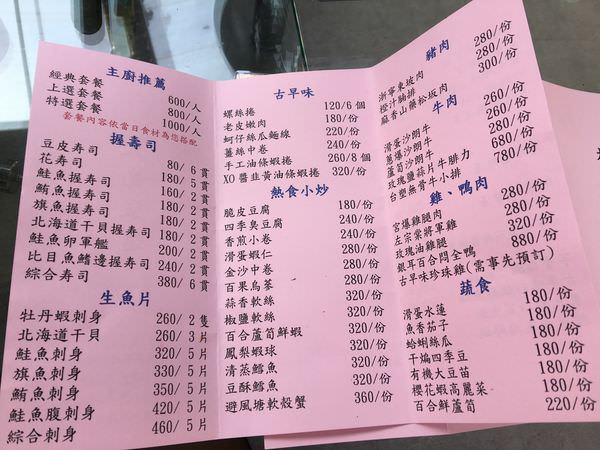 主廚推薦
經典套餐 600/人
上選套餐 800/人
特選套餐 1000/人
套餐內容依當日食材為您搭配
握壽司
豆皮壽司 80/ 6 貫
花壽司 180/ 5 貫
鮭魚握壽司 160/ 2 貫
鮪魚握壽司 200/ 2 貫
旗魚握壽司 180/ 2 貫
北海道干貝握壽司 200/ 2 貫
鮭魚卵軍艦 180/ 2 貫
比目魚鰭邊握壽司 240/ 2 貫
綜合壽司 380/ 6 貫
生魚片
牡丹蝦刺身 260/ 2 隻
北海道干貝 260/ 3 片
鮭魚刺身 320/ 5 片
旗魚刺身 330/ 5 片
鮪魚刺身 350/ 5 片
鮭魚腹刺身 420/ 5 片
綜合刺身 460/ 5 片
古早味
螺絲捲 120/6 個
老皮嫩肉 180/份
蚵仔絲瓜麵線 220/份
薑絲中卷 240/份
手工油條蝦捲 260/8 個
XO 醬韭黃油條蝦捲 320/份
熱食小炒
脆皮豆腐 180/份
四季臭豆腐 240/份
香煎小卷 240/份
滑蛋蝦仁 280/份
金沙中卷 280/份
百果烏蔘 280/份
蒜香軟絲 320/份
椒鹽軟絲 320/份
百合蘆筍鮮蝦 320/份
鳳梨蝦球 320/份
清蒸鱈魚 320/份
豆酥鱈魚 320/份
避風塘軟殼蟹 360/份
豬肉
浙寧東坡肉 280/份
橙汁腩排 280/份
麻香山藥松坂肉 300/份
牛肉
滑蛋沙朗牛 260/份
蔥爆沙朗牛 260/份
蘆筍沙朗牛 280/份
玫瑰鹽蒜片牛腓力 680/份
台塑無骨牛小排 780/份
雞、鴨肉
宮爆雞腿肉 280/份
左宗棠將軍雞 280/份
玫瑰油雞腿 320/份
銀耳百合悶全鴨 880/份
古早味珍珠雞(需事先預訂)
蔬食
滑蛋水蓮 180/份
魚香茄子 180/份
蛤蜊絲瓜 180/份
干煸四季豆 180/份
有機大豆苗 180/份
櫻花蝦高麗菜 180/份
百合鮮蘆筍 220/份